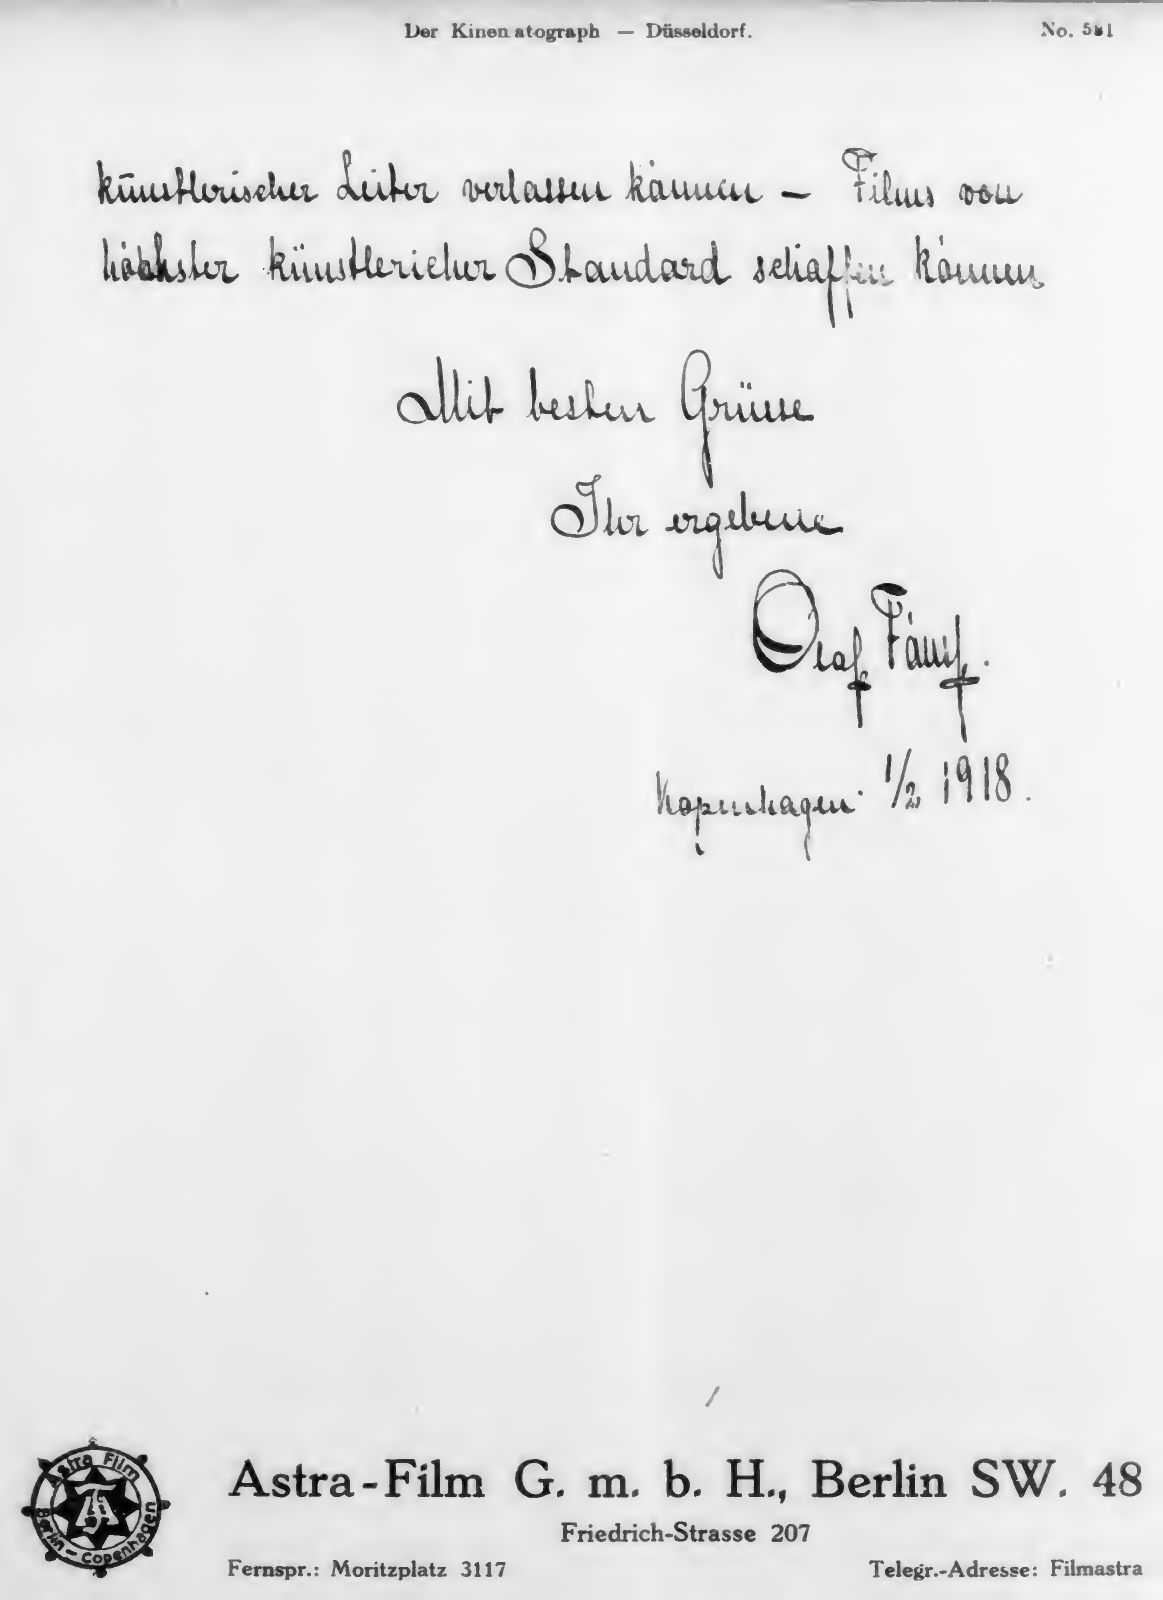 Der Kinematograph — Düsseldorf.
No. 581
künstlerischer Leiter verlassen können — Films von
höchster künstlericher Standard schaffen können
Mit besten Grüsse
Ihr ergebene
Olaf Fönss.
Kopenhagen 1/2 1918.
Astra Film
Berlin - Copenhagen
Astra-Film G. m. b. H., Berlin SW. 48
Friedrich-Strasse 207
Fernspr.: Moritzplatz 3117
Telegr.-Adresse: Filmastra